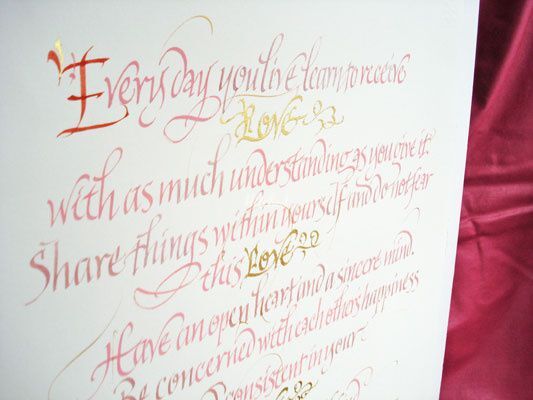 Every day you live, learn to receive
Love
with as much understanding as you give it.
Share things within yourself and do not fear
this Love
Have an open heart and a sincere mind.
Be concerned with each others happiness
consistent in your